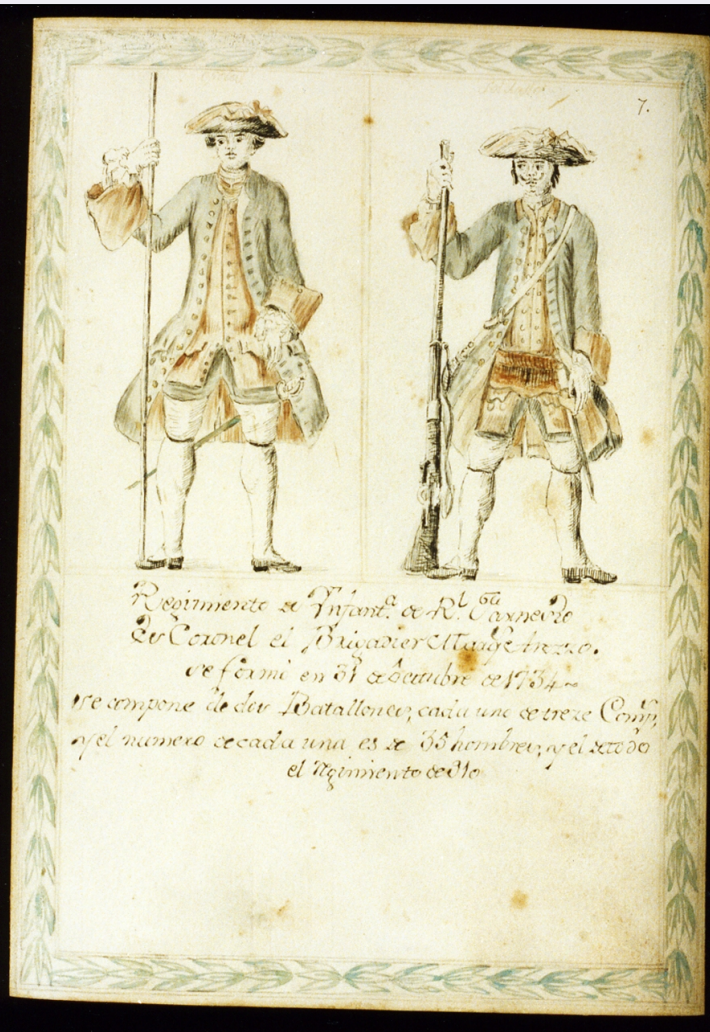 Soldado
7.
Regimiento de Ynfant.ª de R.l
Es Coronel el Brigadier
se formó en 31 de Octubre de 1734
se compone de dos Batallones, cada uno de treze Comp.s
y el numero de cada una es de 35 hombres, y el de todo
el Rgimiento de 910